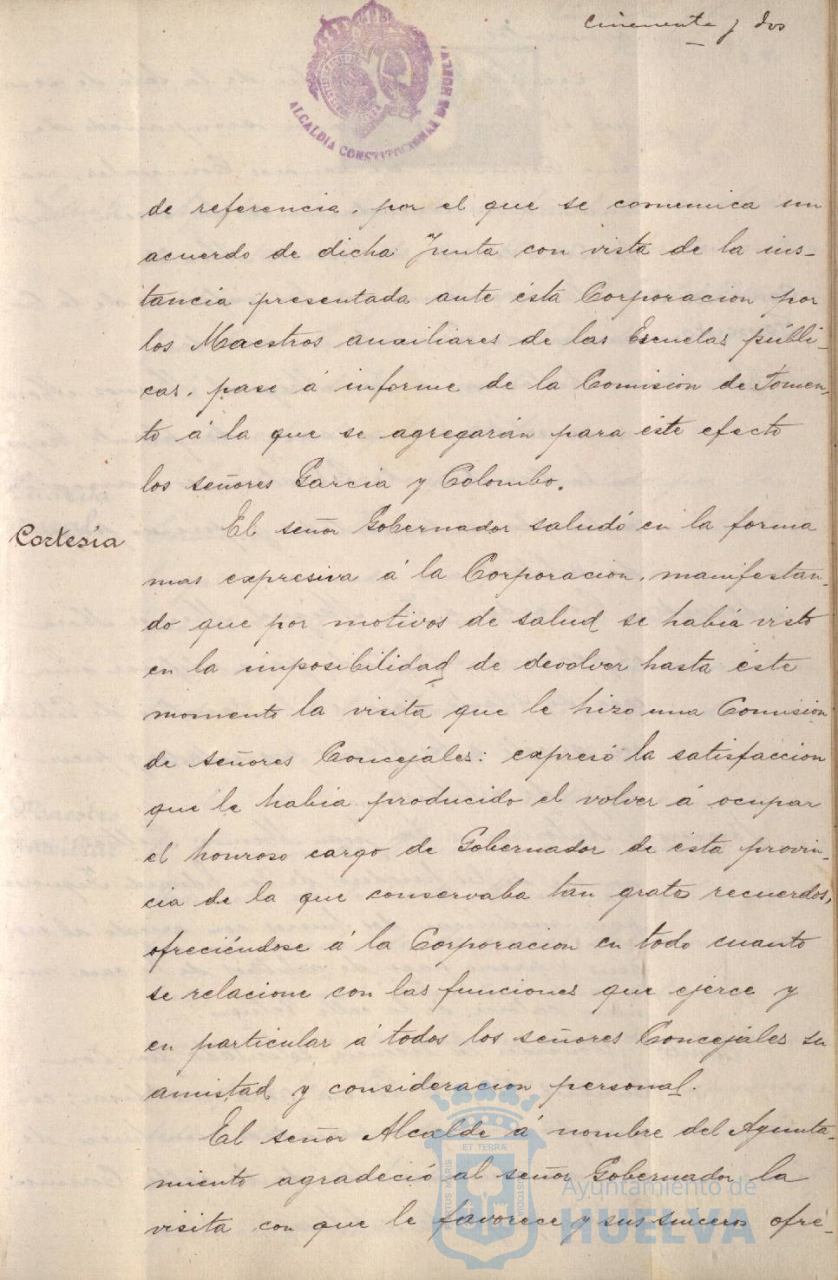 cincuenta y dos
ALCALDIA CONSTITUCIONAL DE HUELVA
de referencia, por el que se comunica un
acuerdo de dicha Junta con vista de la ins-
tancia presentada ante ésta Corporacion por
los Maestros auxiliares de las Escuelas públi-
cas, pase á informe de la Comision de Fomen-
to á la que se agregarán para éste efecto
los señores Garcia y Colombo.
Cortesía
El señor Gobernador saludó en la forma
mas expresiva á la Corporacion, manifestan-
do que por motivos de salud se había visto
en la imposibilidad de devolver hasta éste
momento la visita que le hizo una Comision
de señores Concejales: expresó la satisfaccion
que le habia producido el volver á ocupar
el honroso cargo de Gobernador de ésta provin-
cia de la que conservaba tan gratos recuerdos,
ofreciéndose á la Corporacion en todo cuanto
se relacione con las funciones que ejerce y
en particular á todos los señores Concejales su
amistad y consideracion personal.
El señor Alcalde á nombre del Ayunta-
miento agradeció al señor Gobernador la
visita con que le favorece y sus sinceros ofre-
ET TERRÆ
PORTUS MARIS
CUSTODIA
Ayuntamiento de
HUELVA